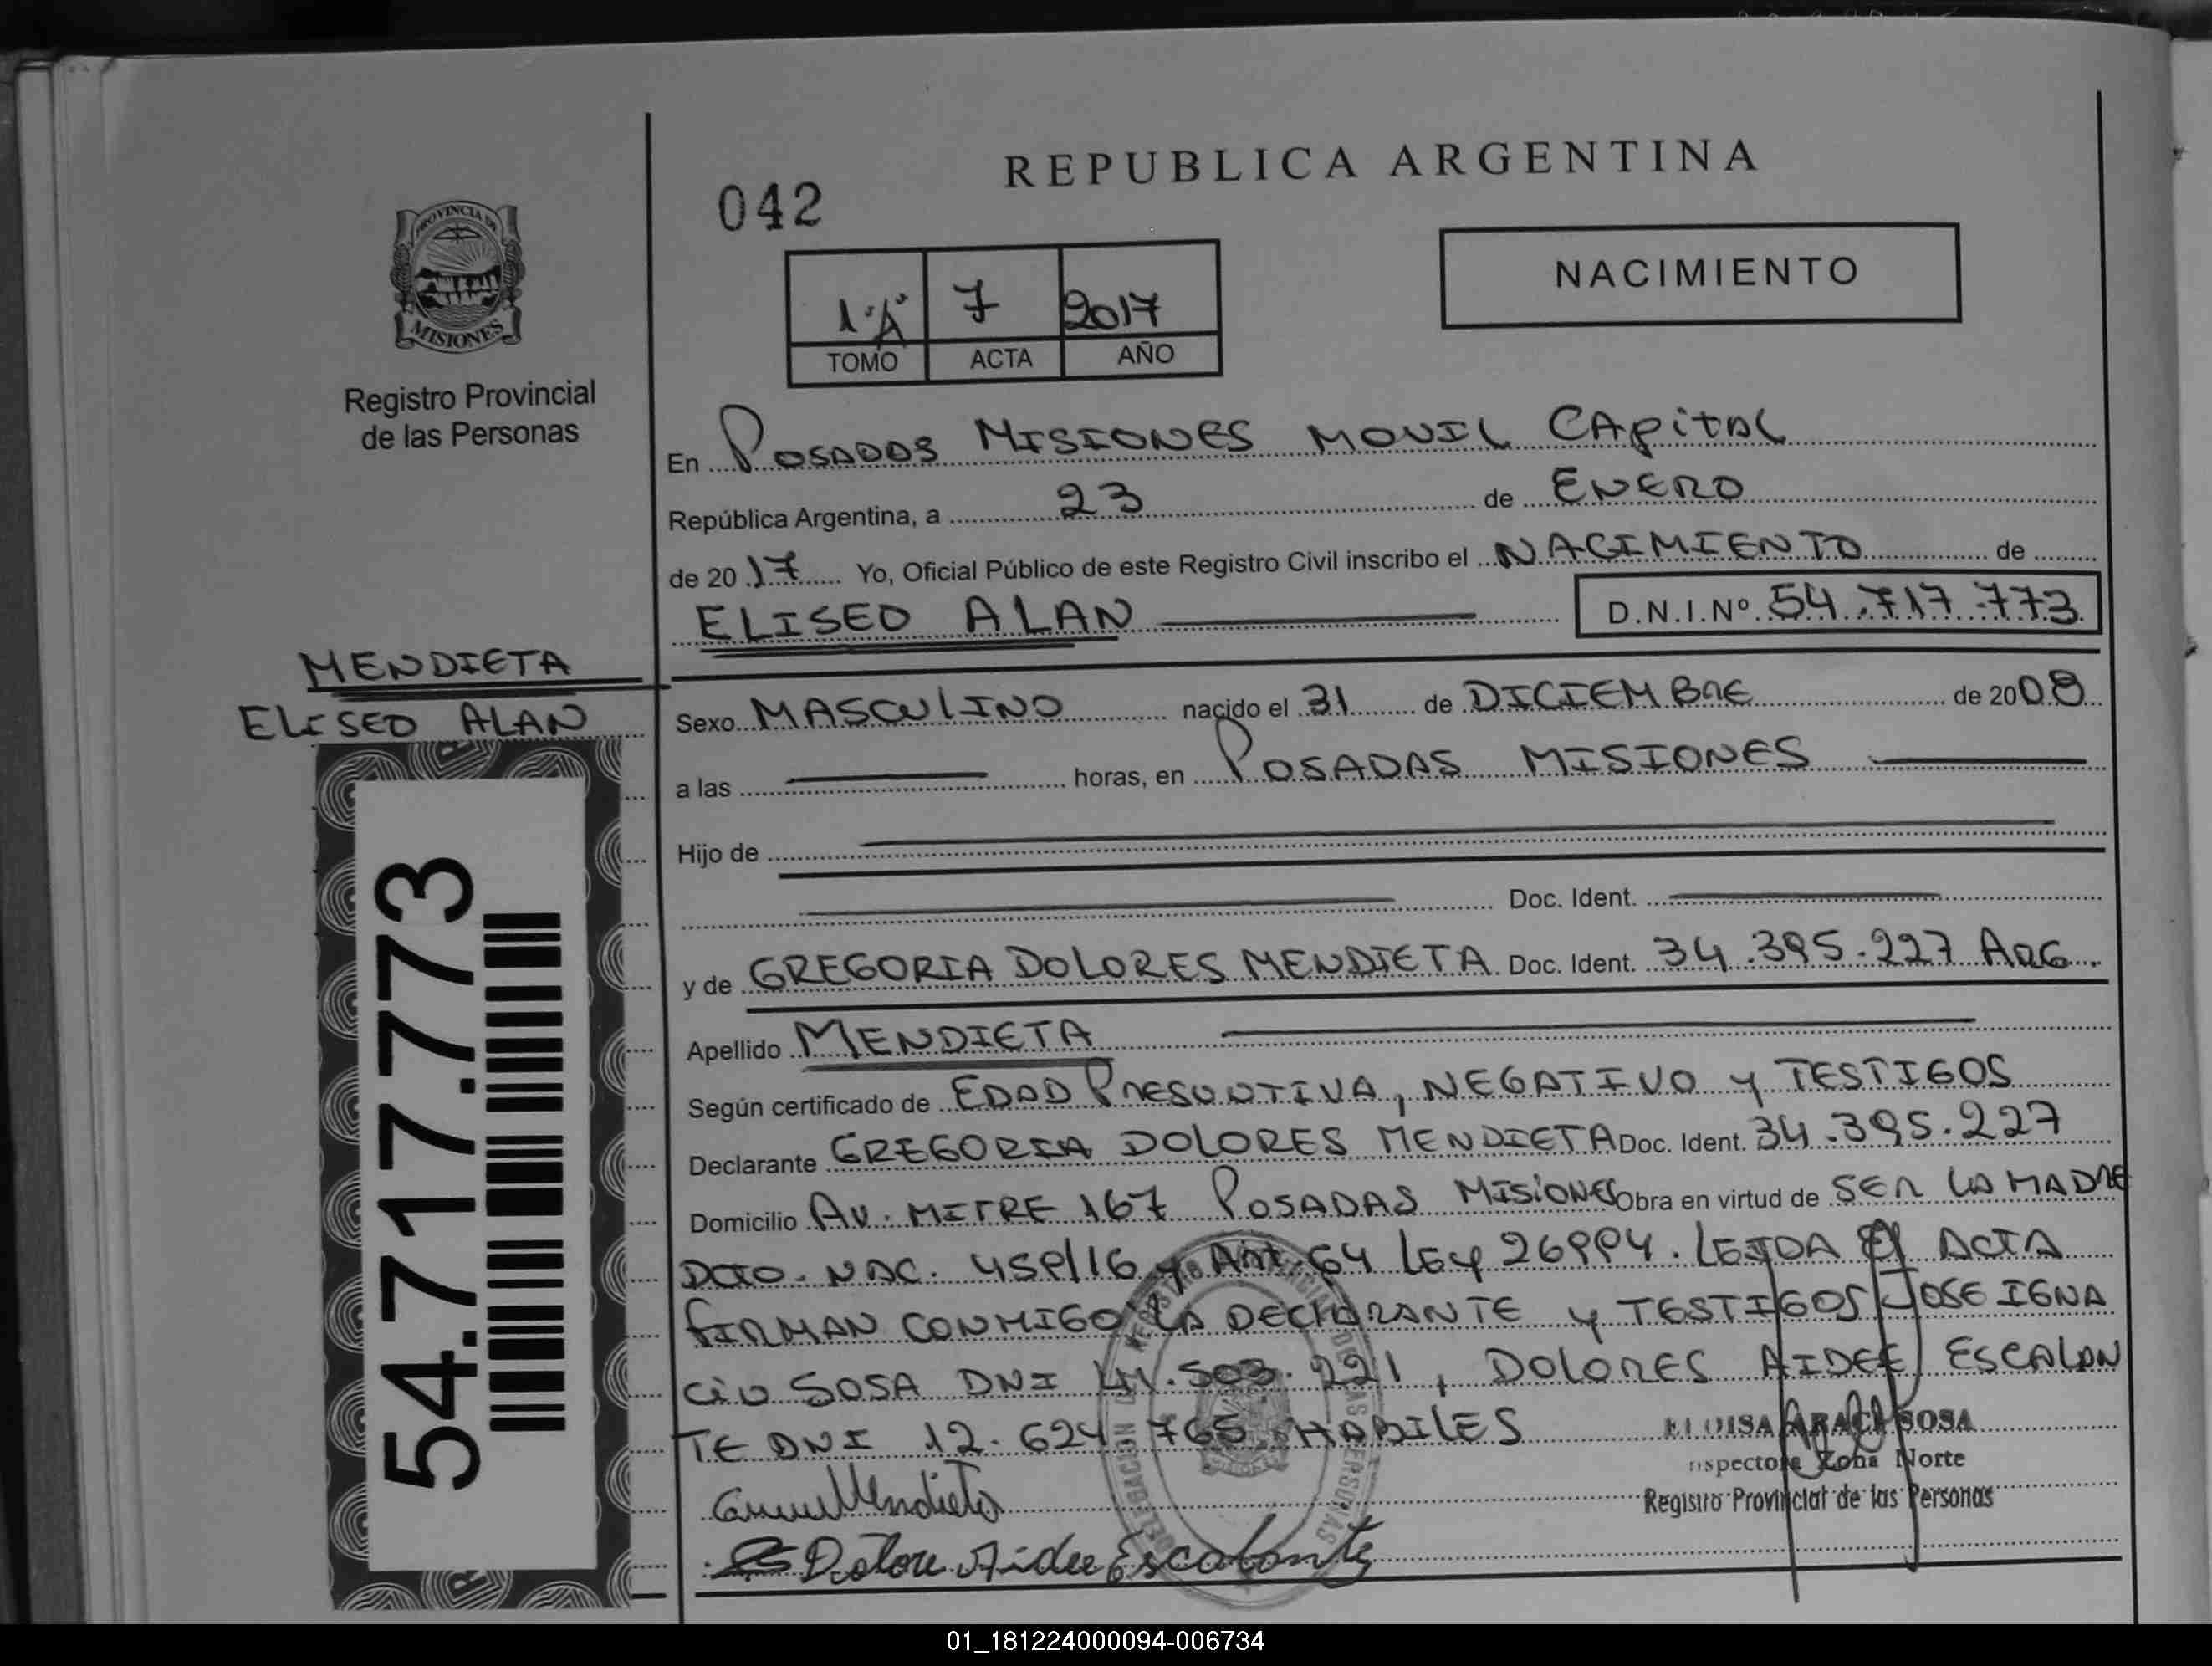 REPUBLICA ARGENTINA
042
NACIMIENTO
PROVINCIA DE
MISIONES
Registro Provincial
de las Personas
1°A 7 2017
TOMO ACTA AÑO
En POSADAS MISIONES MOVIL CAPITAL
República Argentina, a 23 de ENERO
de 2017 Yo, Oficial Público de este Registro Civil inscribo el NACIMIENTO de
ELISEO ALAN D.N.I.Nº 54.717.773
MENDIETA
ELISEO ALAN
Sexo MASCULINO nacido el 31 de DICIEMBRE de 2008
a las horas, en POSADAS MISIONES
Hijo de
Doc. Ident.
y de GREGORIA DOLORES MENDIETA Doc. Ident. 34.395.227 ARG.
Apellido MENDIETA
Según certificado de EDAD PRESUNTIVA, NEGATIVO y TESTIGOS
Declarante GREGORIA DOLORES MENDIETA Doc. Ident. 34.395.227
Domicilio AV. MITRE 167 POSADAS MISIONES Obra en virtud de SER LA MADRE
DCTO. NAC. 459/16 y Art. 64 LEY 26994. LEIDA EL ACTA
FIRMAN CONMIGO LA DECLARANTE y TESTIGOS JOSE IGNA
CIO SOSA DNI 41.503.221, DOLORES AIDEE ESCALAN
TE DNI 12.624.765 HABILES
ELOISA ARACI SOSA
Inspectora Zona Norte
Registro Provincial de las Personas
Mendieta
Dolore Aidee Escalante
54.717.773
01_181224000094-006734